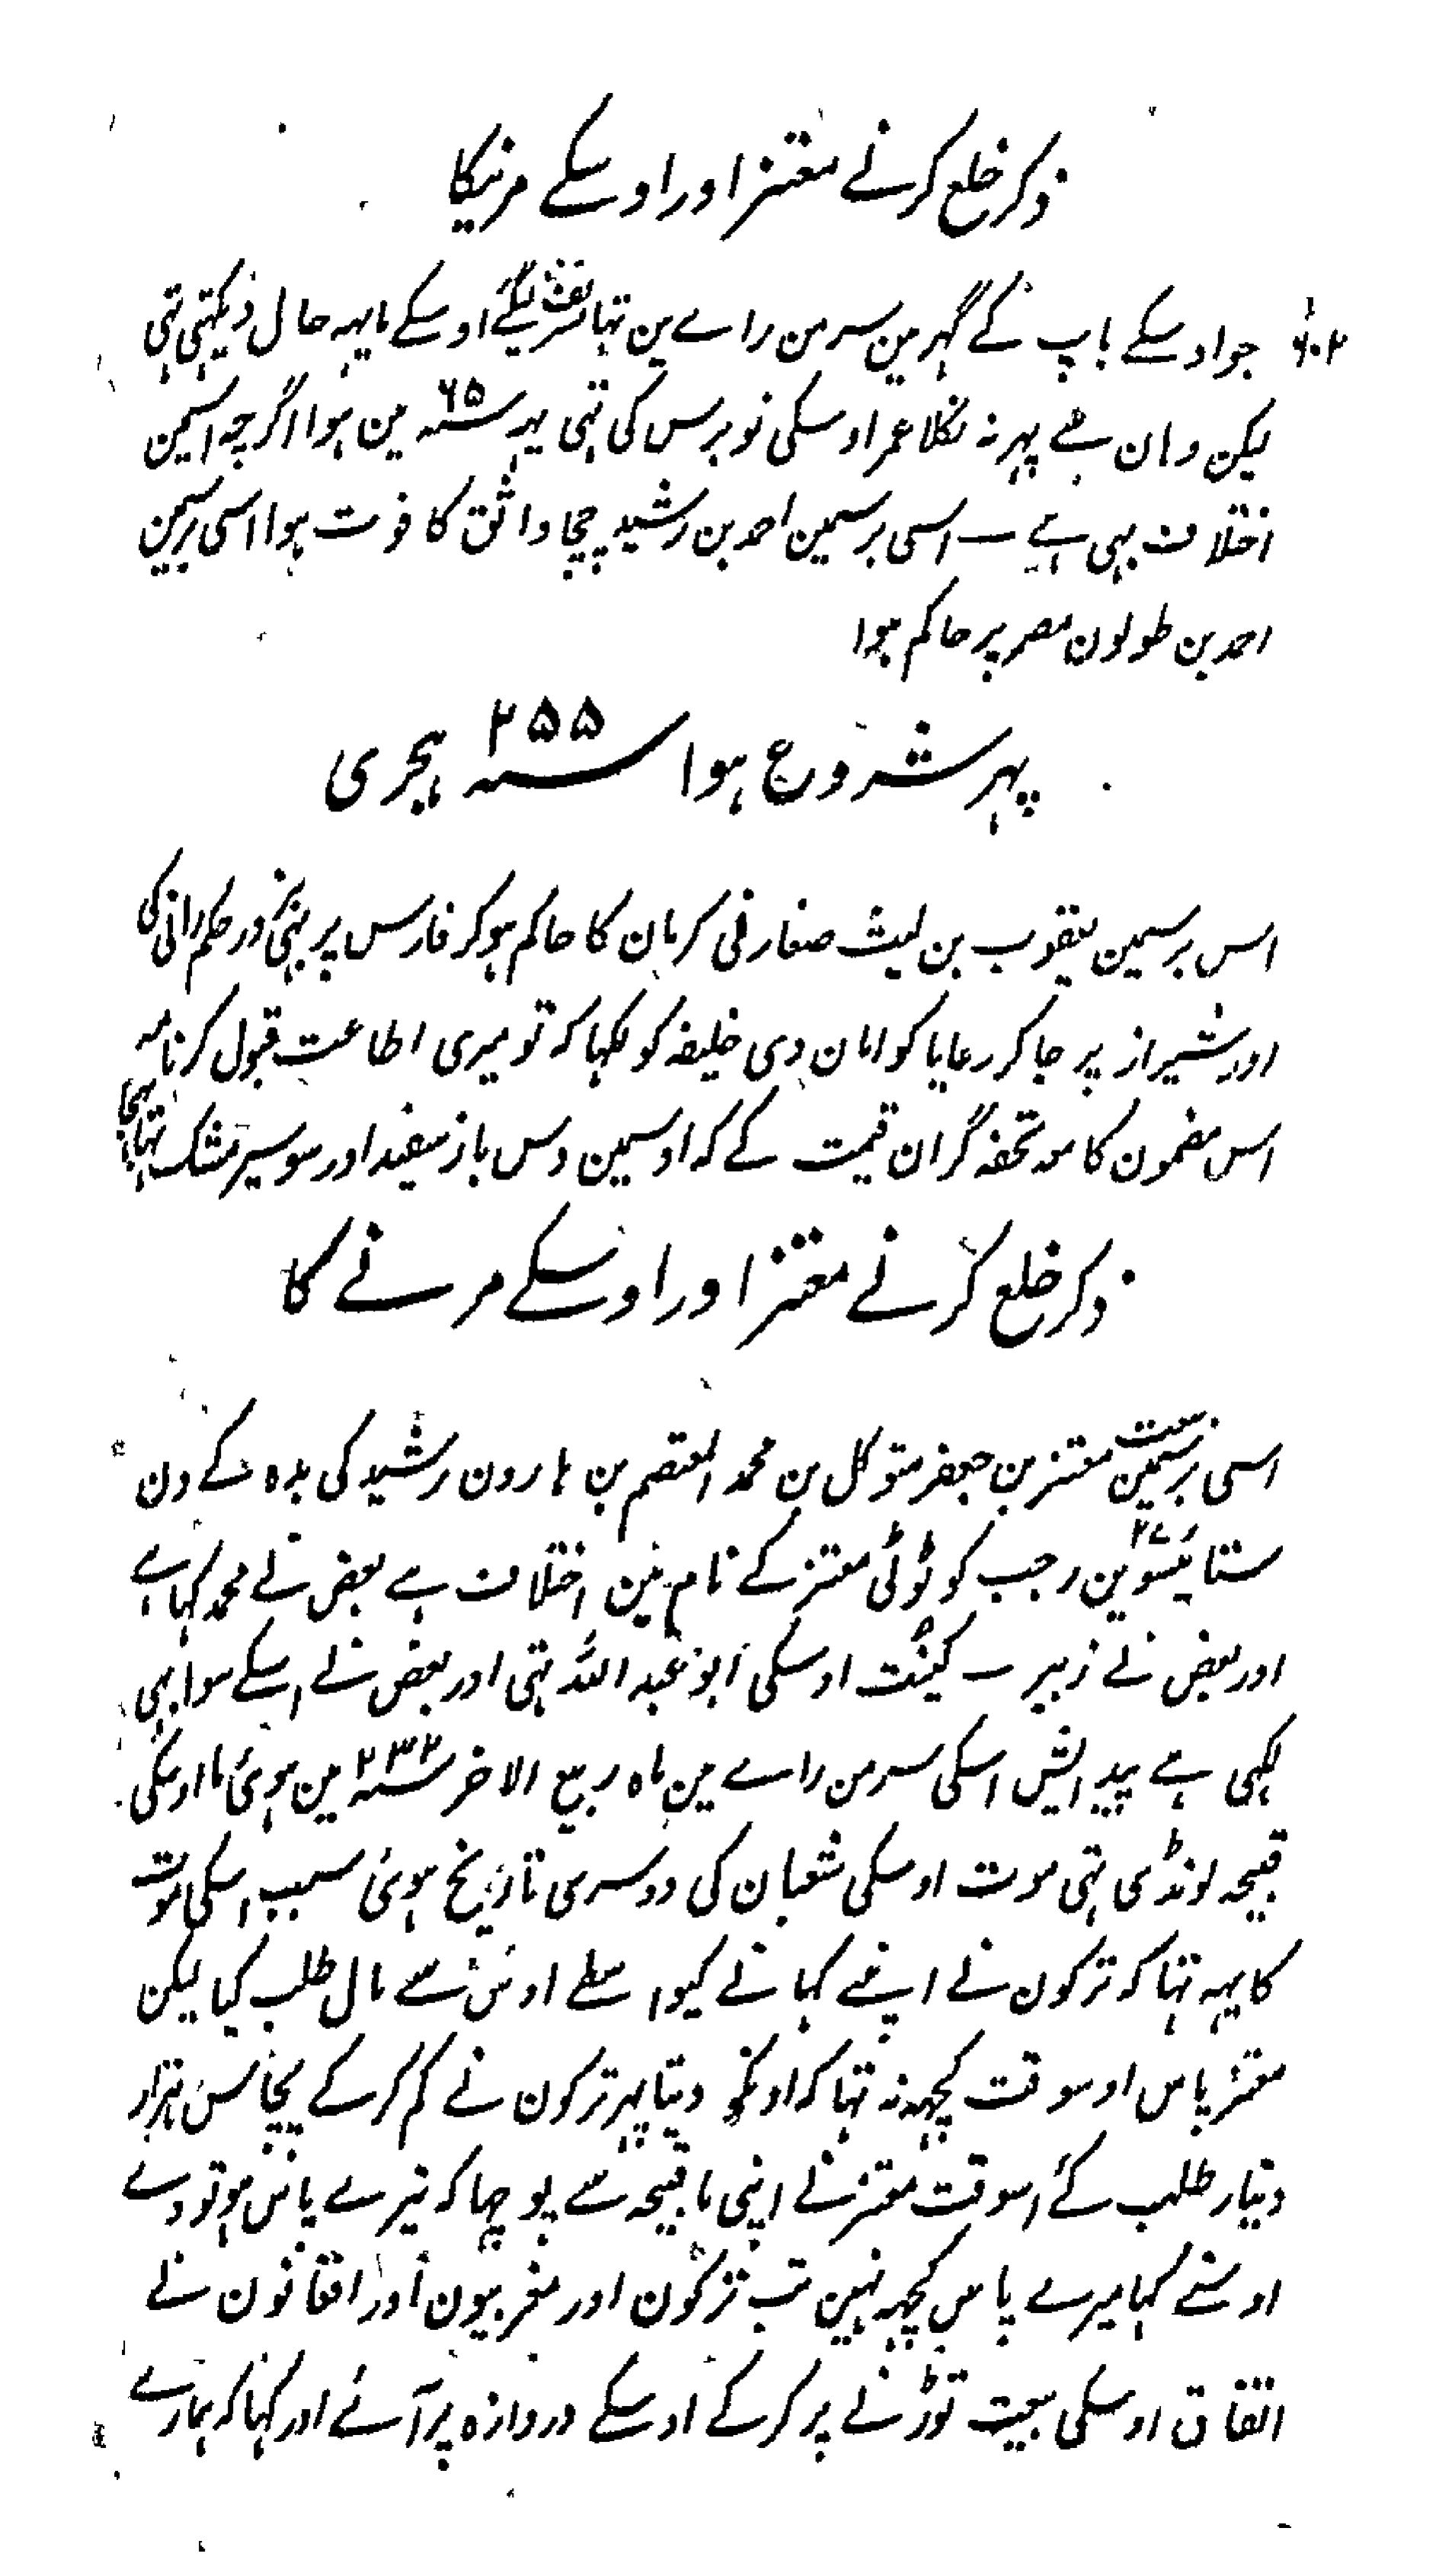 ذکر خلع کرنے معتز اور اوسکے مرنیکا
۶۰۲
جو اوسکے باپ کے گہر مین سرمن راے ین تہا تشریف لیگئے اوسکے ما یہہ حال دیکہتی تہی
لیکن وہان سے پہر نہ نکلا عمر اوسکی نو برس کی تہی یہہ سنہ ۶۵ مین ہوا اگرچہ اسمین
اختلاف بہی ہے ۔ اسی برسمین احمد بن رشید چچا واثق کا فوت ہوا اسی برسمین
احمد بن طولون مصر پر حاکم ہوا
پہر شروع ہوا سنہ ۲۵۵ ہجری
اس برسمین یعقوب بن لیث صفار فی کرمان کا حاکم ہوکر فارس پر بہی حکمرانی کی
اور شیراز پر جا کر رعایا کو امان دی خلیفہ کو لکہا کہ تو میری اطاعت قبول کر نامہ
اس مضمون کا معہ تحفہ گران قیمت کے کہ اوسمین دس باز سفید اور سو سیر مشک تہا بہیجا
ذکر خلع کرنے معتز اور اوسکے مرنے کا
اسی برسمین بیعت معتز بن جعفر متوکل بن محمد المعتصم بن ہارون رشید کی بدہ کے دن
ستائیسوین ۲۷ رجب کو ٹوٹی معتز کے نام مین اختلاف ہے بعض نے محمد کہا ہے
اور بعض نے زبیر ۔ کنیت اوسکی ابو عبد اللہ تہی اور بعض نے اسکے سوا بہی
لکہی ہے پیدایش اسکی سرمن راے مین ماہ ربیع الاخر سنہ ۲۳۲ مین ہوئ ما اوسکی
قبیحہ لونڈی تہی موت اوسکی شعبان کی دوسری تاریخ ہوئ سبب اسکی موت
کا یہہ تہا کہ ترکون نے اپنے کہانے کیواسطے اوس سے مال طلب کیا لیکن
معتز پاس اوسوقت کچہہ نہ تہا کہ اونکو دیتا پہر ترکون نے کم کرکے پچاس ہزار
دینار طلب کئے اسوقت معتز نے اپنی ما قبیحہ سے پوچہا کہ تیرے پاس ہو تو دے
اوسنے کہا میرے پاس کچہہ نہین تب ترکون اور مغربیون اور افغانون نے
اتفاق اوسکی بیعت توڑنے پر کرکے اوسکے دروازہ پر آئے اور کہا کہ ہمارے